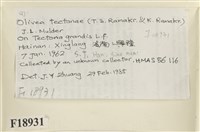 Olivea tectonae (T.S. Ramakr. & K. Ramakr.)
J.L. Mulder
On Tectona grandis L.f.
Hainan: Xinglong 海南
7 Jan. 1962 S.Y.
Collected by an unknown collector, HMAS 86116
Det. J.Y. Zhuang 27 Feb. 1985
F18931
F18931